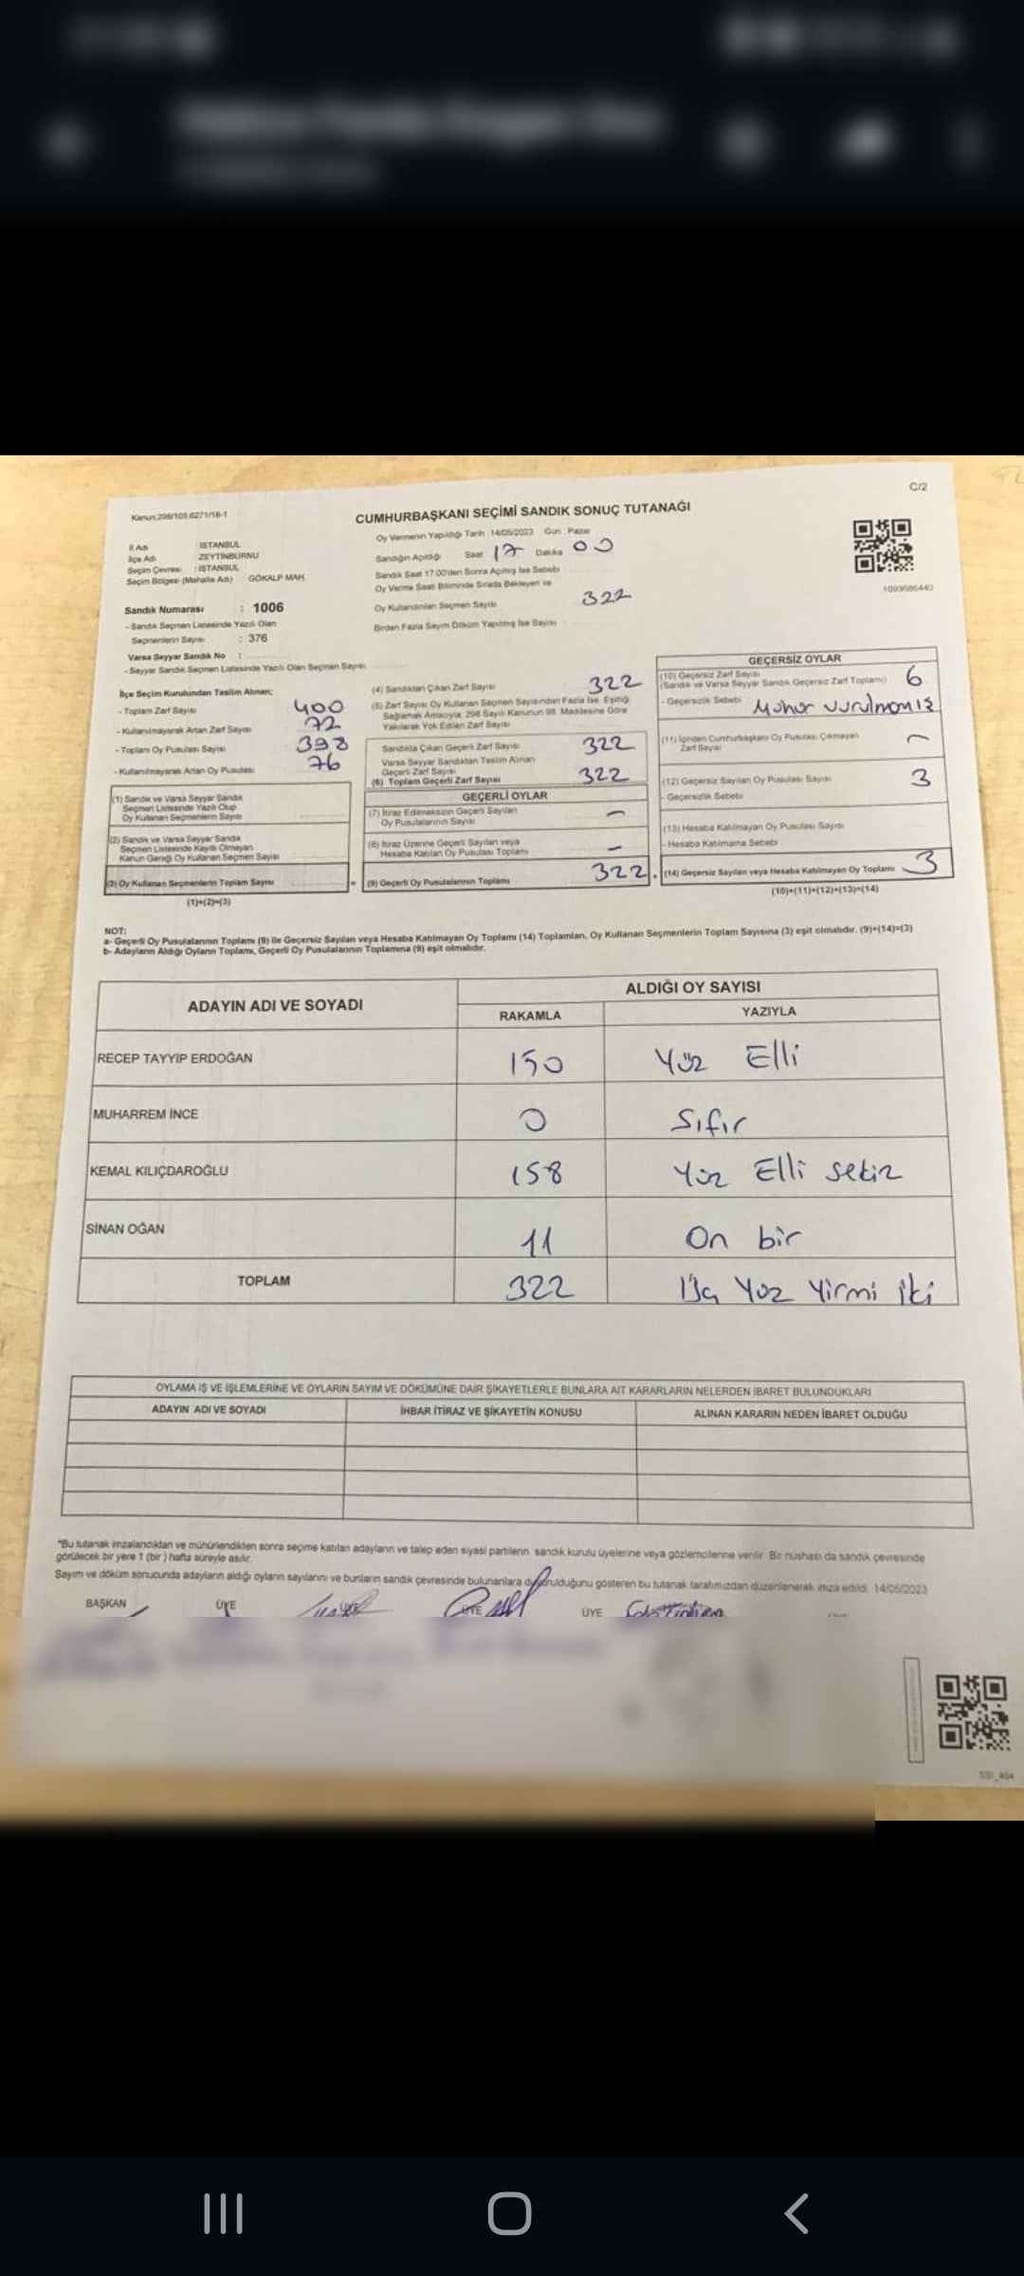 C/2
Kanun:298/105,6271/16-1
CUMHURBAŞKANI SEÇİMİ SANDIK SONUÇ TUTANAĞI
İl Adı : İSTANBUL
İlçe Adı : ZEYTİNBURNU
Seçim Çevresi : İSTANBUL
Seçim Bölgesi (Mahalle Adı) GÖKALP MAH.
Sandık Numarası : 1006
- Sandık Seçmen Listesinde Yazılı Olan
Seçmenlerin Sayısı : 376
Varsa Seyyar Sandık No :
- Seyyar Sandık Seçmen Listesinde Yazılı Olan Seçmen Sayısı
Oy Vermenin Yapıldığı Tarih :14/05/2023 Gün : Pazar
Sandığın Açıldığı Saat 17 Dakika 00
Sandık Saat 17:00'den Sonra Açılmış İse Sebebi
Oy Verme Saati Bitiminde Sırada Bekleyen ve
Oy Kullandırılan Seçmen Sayısı 322
Birden Fazla Sayım Döküm Yapılmış İse Sayısı
1093686440
İlçe Seçim Kurulundan Teslim Alınan;
- Toplam Zarf Sayısı 400
- Kullanılmayarak Artan Zarf Sayısı 72
- Toplam Oy Pusulası Sayısı 398
- Kullanılmayarak Artan Oy Pusulası 76
(1) Sandık ve Varsa Seyyar Sandık
Seçmen Listesinde Yazılı Olup
Oy Kullanan Seçmenlerin Sayısı
(2) Sandık ve Varsa Seyyar Sandık
Seçmen Listesinde Kayıtlı Olmayan
Kanun Gereği Oy Kullanan Seçmen Sayısı
(3) Oy Kullanan Seçmenlerin Toplam Sayısı =
(1)+(2)=(3)
(4) Sandıktan Çıkan Zarf Sayısı 322
(5) Zarf Sayısı Oy Kullanan Seçmen Sayısından Fazla İse, Eşitliği
Sağlamak Amacıyla, 298 Sayılı Kanunun 98. Maddesine Göre
Yakılarak Yok Edilen Zarf Sayısı
Sandıkta Çıkan Geçerli Zarf Sayısı 322
Varsa Seyyar Sandıktan Teslim Alınan
Geçerli Zarf Sayısı
(6) Toplam Geçerli Zarf Sayısı 322
GEÇERLİ OYLAR
(7) İtiraz Edilmeksizin Geçerli Sayılan
Oy Pusulalarının Sayısı –
(8) İtiraz Üzerine Geçerli Sayılan veya
Hesaba Katılan Oy Pusulası Toplamı –
(9) Geçerli Oy Pusulalarının Toplamı 322
GEÇERSİZ OYLAR
(10) Geçersiz Zarf Sayısı
(Sandık ve Varsa Seyyar Sandık Geçersiz Zarf Toplamı) 6
- Geçersizlik Sebebi Mühür vurulmamış
(11) İçinden Cumhurbaşkanı Oy Pusulası Çıkmayan
Zarf Sayısı –
(12) Geçersiz Sayılan Oy Pusulası Sayısı 3
- Geçersizlik Sebebi
(13) Hesaba Katılmayan Oy Pusulası Sayısı
- Hesaba Katılmama Sebebi
(14) Geçersiz Sayılan veya Hesaba Katılmayan Oy Toplamı 3
(10)+(11)+(12)+(13)=(14)
NOT:
a- Geçerli Oy Pusulalarının Toplamı (9) ile Geçersiz Sayılan veya Hesaba Katılmayan Oy Toplamı (14) Toplamları, Oy Kullanan Seçmenlerin Toplam Sayısına (3) eşit olmalıdır. (9)+(14)=(3)
b- Adayların Aldığı Oyların Toplamı, Geçerli Oy Pusulalarının Toplamına (9) eşit olmalıdır.
ADAYIN ADI VE SOYADI ALDIĞI OY SAYISI
RAKAMLA YAZIYLA
RECEP TAYYİP ERDOĞAN 150 Yüz Elli
MUHARREM İNCE 0 Sıfır
KEMAL KILIÇDAROĞLU 158 Yüz Elli sekiz
SİNAN OĞAN 11 On bir
TOPLAM 322 Üç Yüz Yirmi iki
OYLAMA İŞ VE İŞLEMLERİNE VE OYLARIN SAYIM VE DÖKÜMÜNE DAİR ŞİKAYETLERLE BUNLARA AİT KARARLARIN NELERDEN İBARET BULUNDUKLARI
ADAYIN ADI VE SOYADI İHBAR İTİRAZ VE ŞİKAYETİN KONUSU ALINAN KARARIN NEDEN İBARET OLDUĞU
"Bu tutanak imzalandıktan ve mühürlendikten sonra seçime katılan adayların ve talep eden siyasi partilerin sandık kurulu üyelerine veya gözlemcilerine verilir. Bir nüshası da sandık çevresinde
görülecek bir yere 1 (bir) hafta süreyle asılır.
Sayım ve döküm sonucunda adayların aldığı oyların sayılarını ve bunların sandık çevresinde bulunanlara duyurulduğunu gösteren bu tutanak tarafımızdan düzenlenerek imza edildi. 14/05/2023
BAŞKAN ÜYE ÜYE ÜYE ÜYE